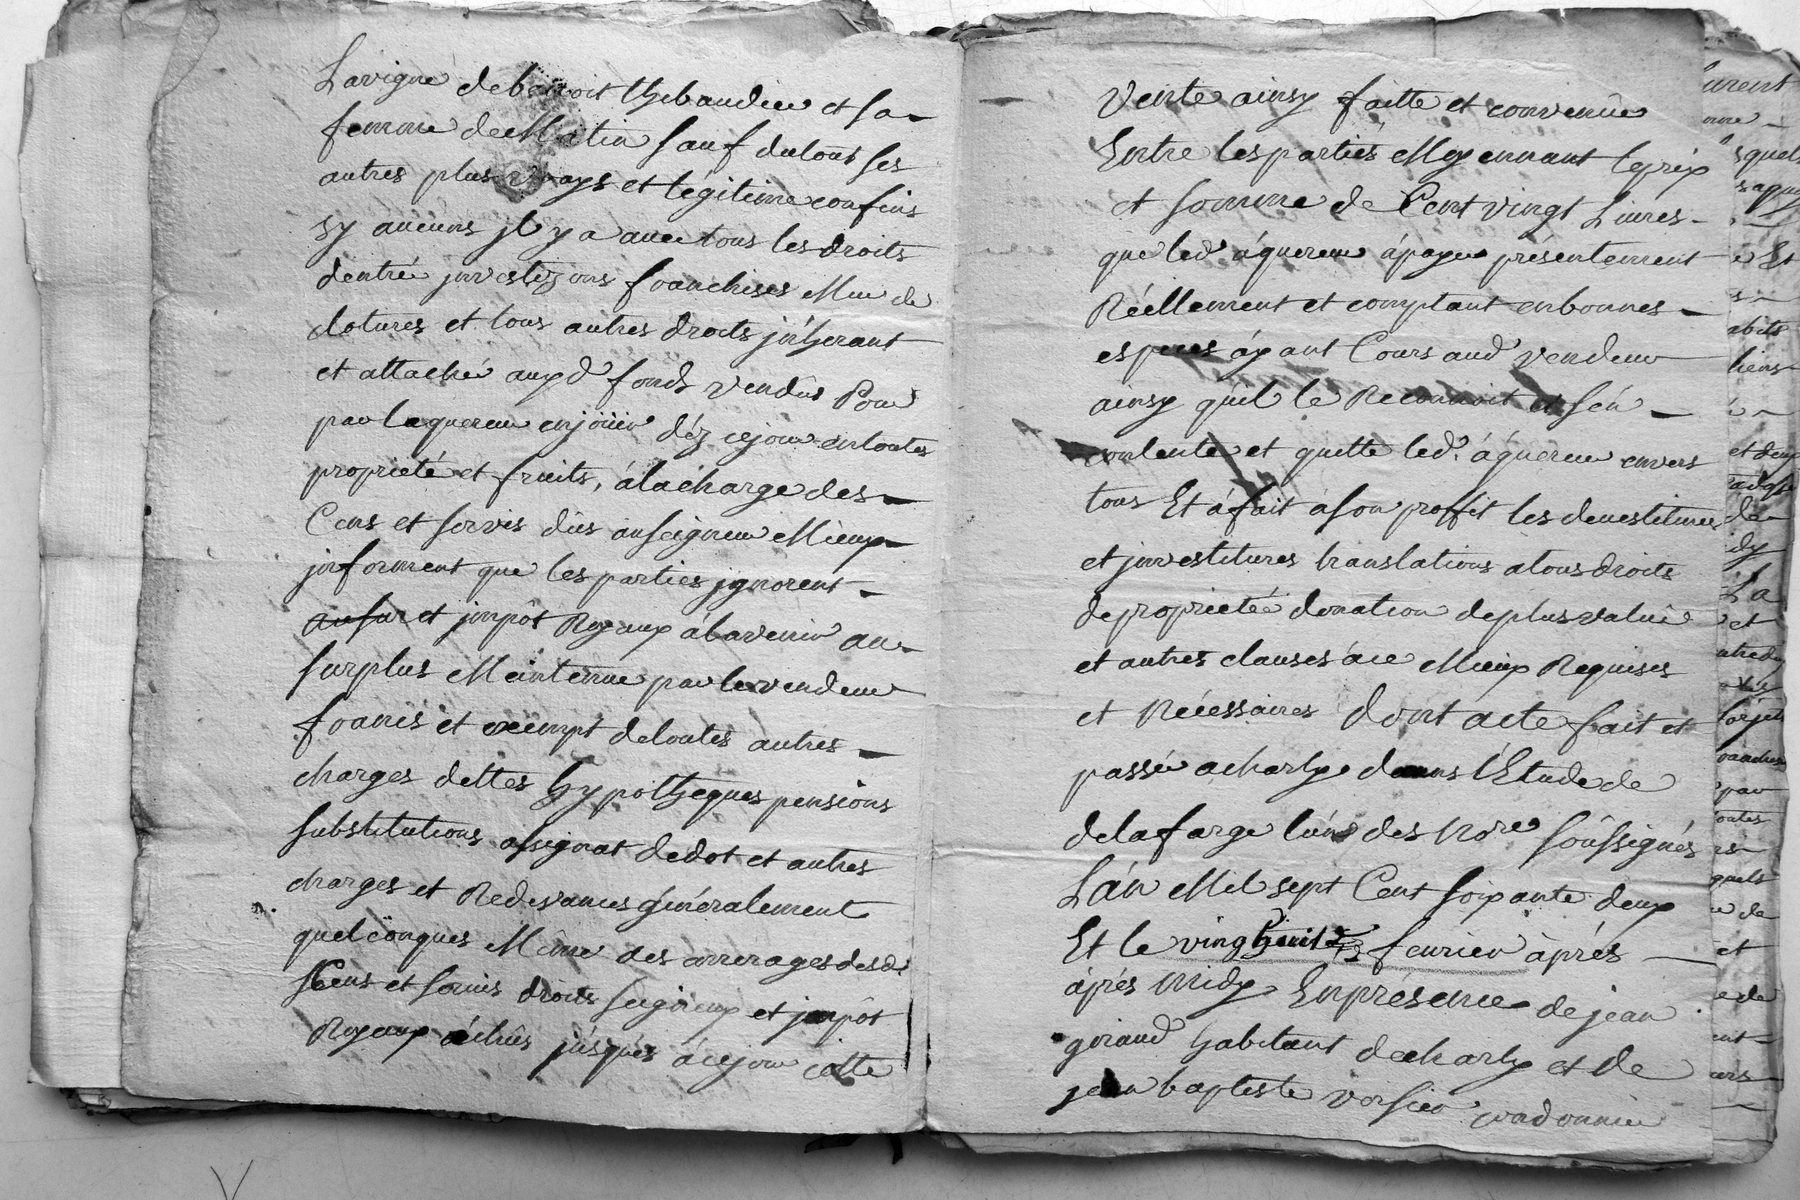 Lavigne de benoit thibaudier et sa
femme de Matin sauf du tout ses
autres plus vrays et légitime confins
sy aucuns jl y a avec tous les droits
dentré jnvestizons franchises Mur de
clotures et tous autres droits jnherant
et attaché auxd. fonds vendus Pour
par laquereur enjoüir déz cejour en toutes
proprieté et fruits, álachárge des
Cens et servis dûs auseigneur Mieux
jnforment que les parties jgnorent
au sur et jmpôt Royaux álavenir au
surplus Maintenue par levendeur
francs et exempt detoutes autres
charges dettes hypotheques pensions
substitutions assignat dedot et autres
charges et Redevances généralement
quelconques Même des arrerages desd.
Cens et servis droits seigneux et jmpôt
Royaux échûs jusqués ácejour cette
Vente ainsy faitte et convenüe
Entre les parties Moyennant leprix
et somme de Cent vingt Livres
que led. áquereur ápayer présentement
Réellement et comptant enbonnes
especes áyant Cours aud. vendeur
ainsy quíl le Reconnoit et sén
contente et quitte led. áquereur envers
tous Et áfait ason proffit les devestitures
et jnvestitures translations atous droits
de proprieteé donation deplus value
et autres clauses áce Mieux Requises
et Nécessaires dont acte fait et
passé acharly dans l'Etude de
delafarge lún des Nore soússignés
Lán Mil sept Cent soixante deux
Et le vinghuit fevrier áprés
áprés Midy Enprésence de jean
giraud habitant decharly et de
jean baptiste versier cordonnier